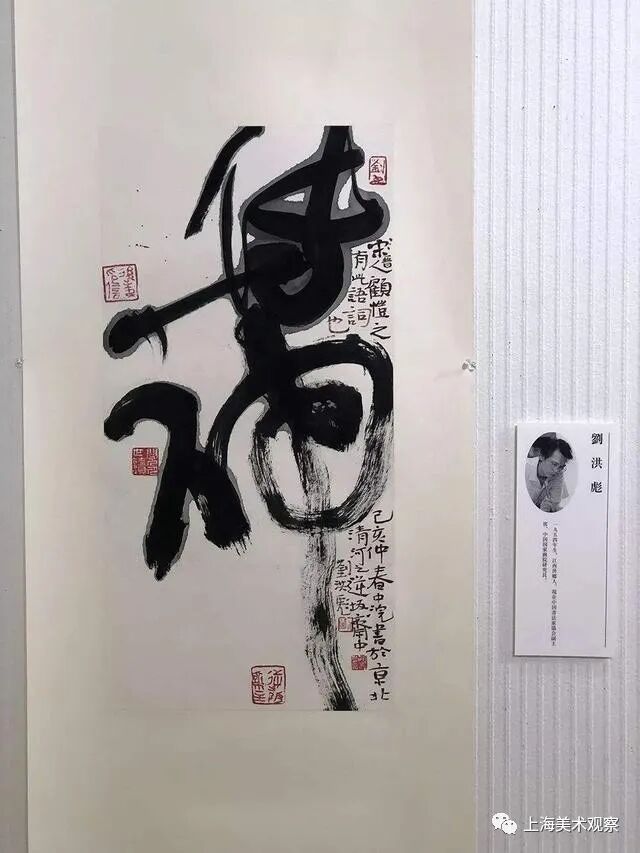 傳神
顧愷之
有此語詞
也
己亥仲春中浣書於京北
清河之逆坂齋中
劉洪彪
劉洪彪
一九五四年生，江西萍鄉人。現任中国書法家協會副主
席、中国国家画院研究員。
上海美术观察